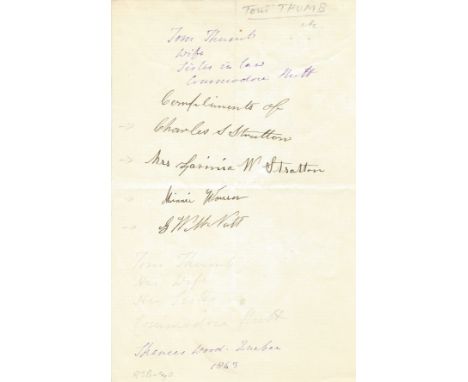 TOM THUMB
etc
Tom Thumb
Wife
Sister in law
Commodore Nutt
Compliments of
Charles S Stratton
Mrs Lavinia W Stratton
Minnie Warren
G W M Nutt
Tom Thumb
His Wife
Her Sister
Commodore Nutt
Quebec
1863